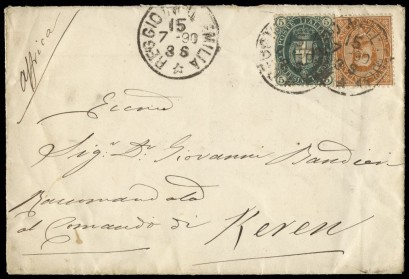 REGGIO NELL' EMILIA
15
7-90
8 S
Africa
Sig. Dr. Giovanni Bandieri
Raccomandata
al Comando di Keren